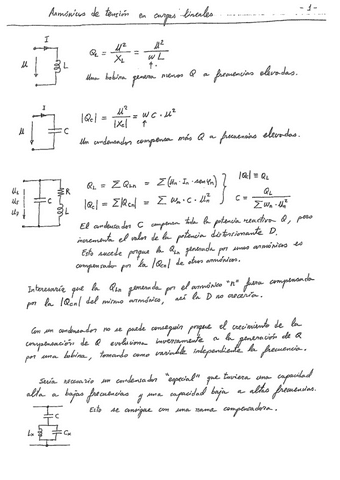 Armónicos de tensión en cargas lineales - 1 -
I
u L
Q_L = u²/X_L = u²/wL
Una bobina genera menos Q a frecuencias elevadas.
I
u C
|Q_C| = u²/|X_C| = w C · u²
Un condensador compensa más Q a frecuencias elevadas.
C R L
Q_L = Σ Q_Ln = Σ (U_n · I_n · sen φ_n)
|Q_C| = Σ |Q_Cn| = Σ w_n · C · u_n²
|Q_C| = Q_L
C = Q_L / Σ w_n · u_n²
El condensador C compensa toda la potencia reactiva Q, pero
incrementa el valor de la potencia distorsionante D.
Esto sucede porque la Q_Ln generada por unos armónicos es
compensada por la |Q_Cn| de otros armónicos.
Interesaría que la Q_Ln generada por el armónico "n" fuera compensada
por la |Q_Cn| del mismo armónico, así la D no crecería.
Con un condensador no se puede conseguir porque el crecimiento de la
compensación de Q evoluciona inversamente a la generación de Q
por una bobina, tomando como variable independiente la frecuencia.
Sería necesario un condensador "especial" que tuviera una capacidad
alta a bajas frecuencias y una capacidad baja a altas frecuencias.
Esto se consigue con una rama compensadora.
C